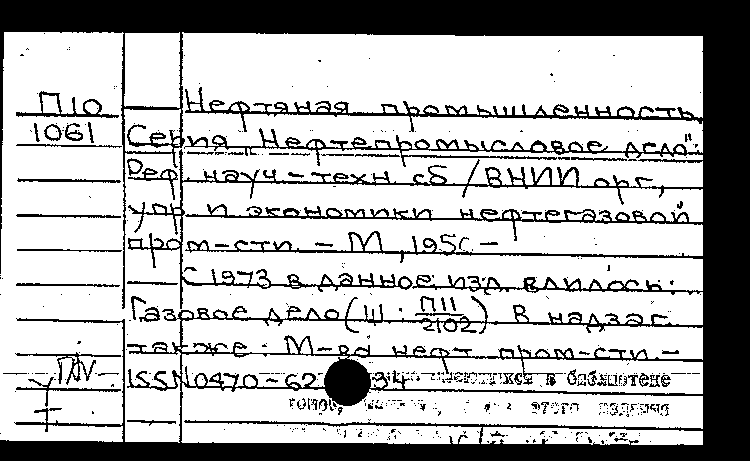 П10 Нефтяная промышленность.
1061 Серия „Нефтепромысловое дело":
Реф. науч-техн сб /ВНИИ орг.,
упр. и экономики нефтегазовой
пром-сти. - М, 195 -
С 1973 в данное изд. влилось:
Газовое дело (Ш : П11/2102). В надзаг.
также: М-во нефт. пром-сти. -
ISSN0470-62 34 имеющихся в библиотеке
томов, этого издания